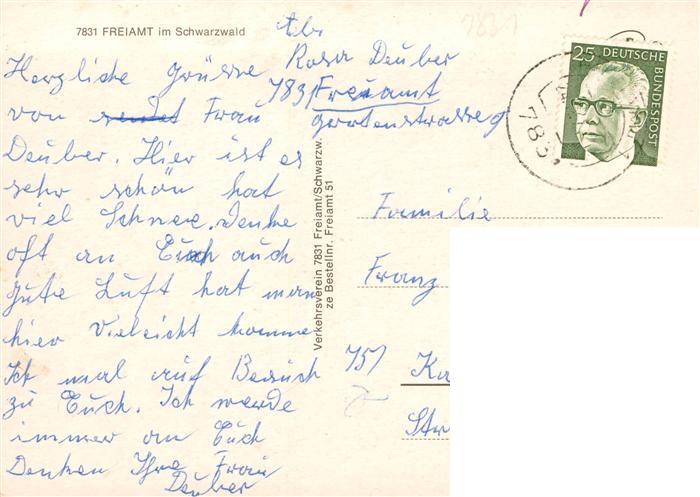 7831 FREIAMT im Schwarzwald
7831
Abs.
Rosa Deuber
7831 Freiamt
Gartenstrasse 9
25 DEUTSCHE
BUNDESPOST
783
Herzliche Grüsse
von sendet Frau
Deuber. Hier ist es
sehr schön hat
viel Schnee. Denke
oft an Euch auch
gute Luft hat man
hier Vieleicht komme
Ich mal auf Besuch
zu Euch. Ich werde
immer an Euch
Denken Ihre Frau
Deuber
Verkehrsverein 7831 Freiamt/Schwarzw.
ze Bestellnr. Freiamt 51
Familie
Franz
757 Ka
Str